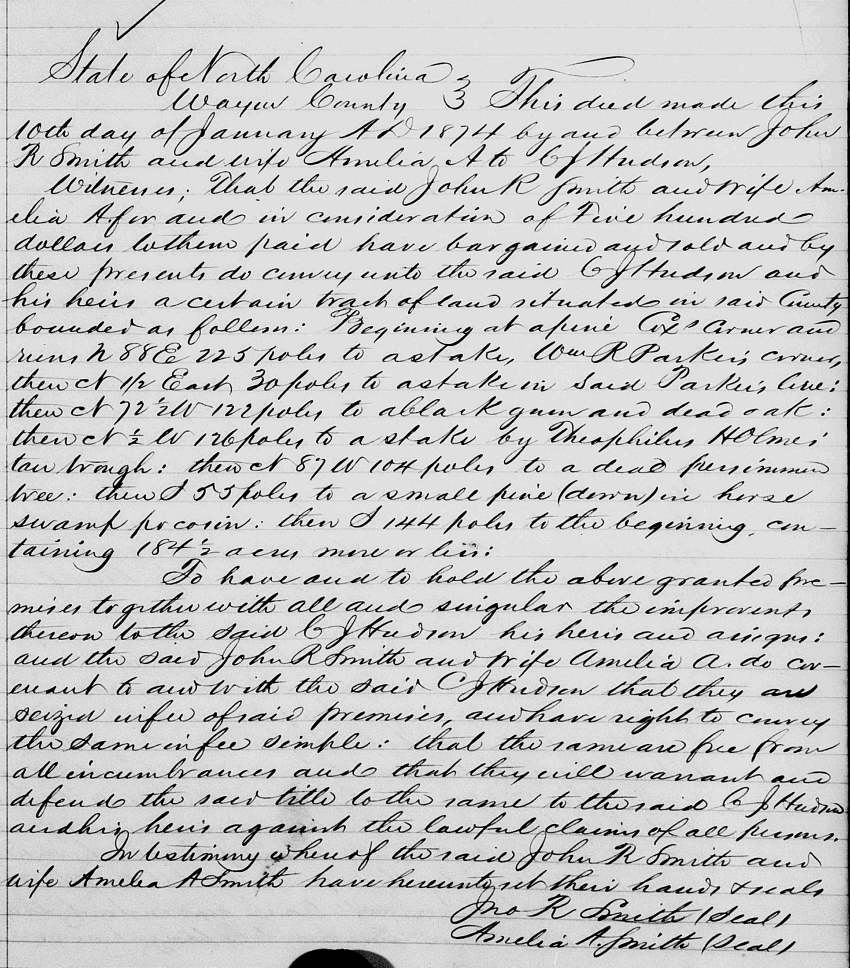 State of North Carolina
Wayne County } This deed made this
10th day of January A D 1874 by and between John
R Smith and wife Amelia, A to C J Hudson,
Witnesses; That the said John R Smith and wife Am-
elia A for and in consideration of Five hundred
dollars to them paid have bargained and sold and by
these presents do convey unto the said C J Hudson and
his heirs a certain tract of land situated in said County
bounded as follows: Beginning at a pine Cox's corner and
runs N 88 E 225 poles to a stake, Wm R Parker's corner,
then N 1/2 East 30 poles to a stake in said Parker's line:
then N 72 1/2 W 122 poles to a black gum and dead oak:
then N 1/2 W 126 poles to a stake by Theophilus Holmes'
tar trough: then N 87 W 104 poles to a dead persimmon
tree: then S 55 poles to a small pine (down) in horse
swamp pocosin: then S 144 poles to the beginning, con-
taining 184 1/2 acres more or less:
To have and to hold the above granted pre-
mises together with all and singular the improvents
thereon to the said C J Hudson his heirs and assigns:
and the said John R Smith and wife Amelia A. do cov-
enant to and with the said C J Hudson that they are
seized in fee of said premises, and have right to convey
the same in fee simple: that the same are free from
all incumbrances and that they will warrant and
defend the said title to the same to the said C J Hudson
and his heirs against the lawful claims of all persons.
In testimony whereof the said John R Smith and
wife Amelia A Smith have hereunto set their hands & seals
Jno R Smith (Seal)
Amelia A. Smith (Seal)